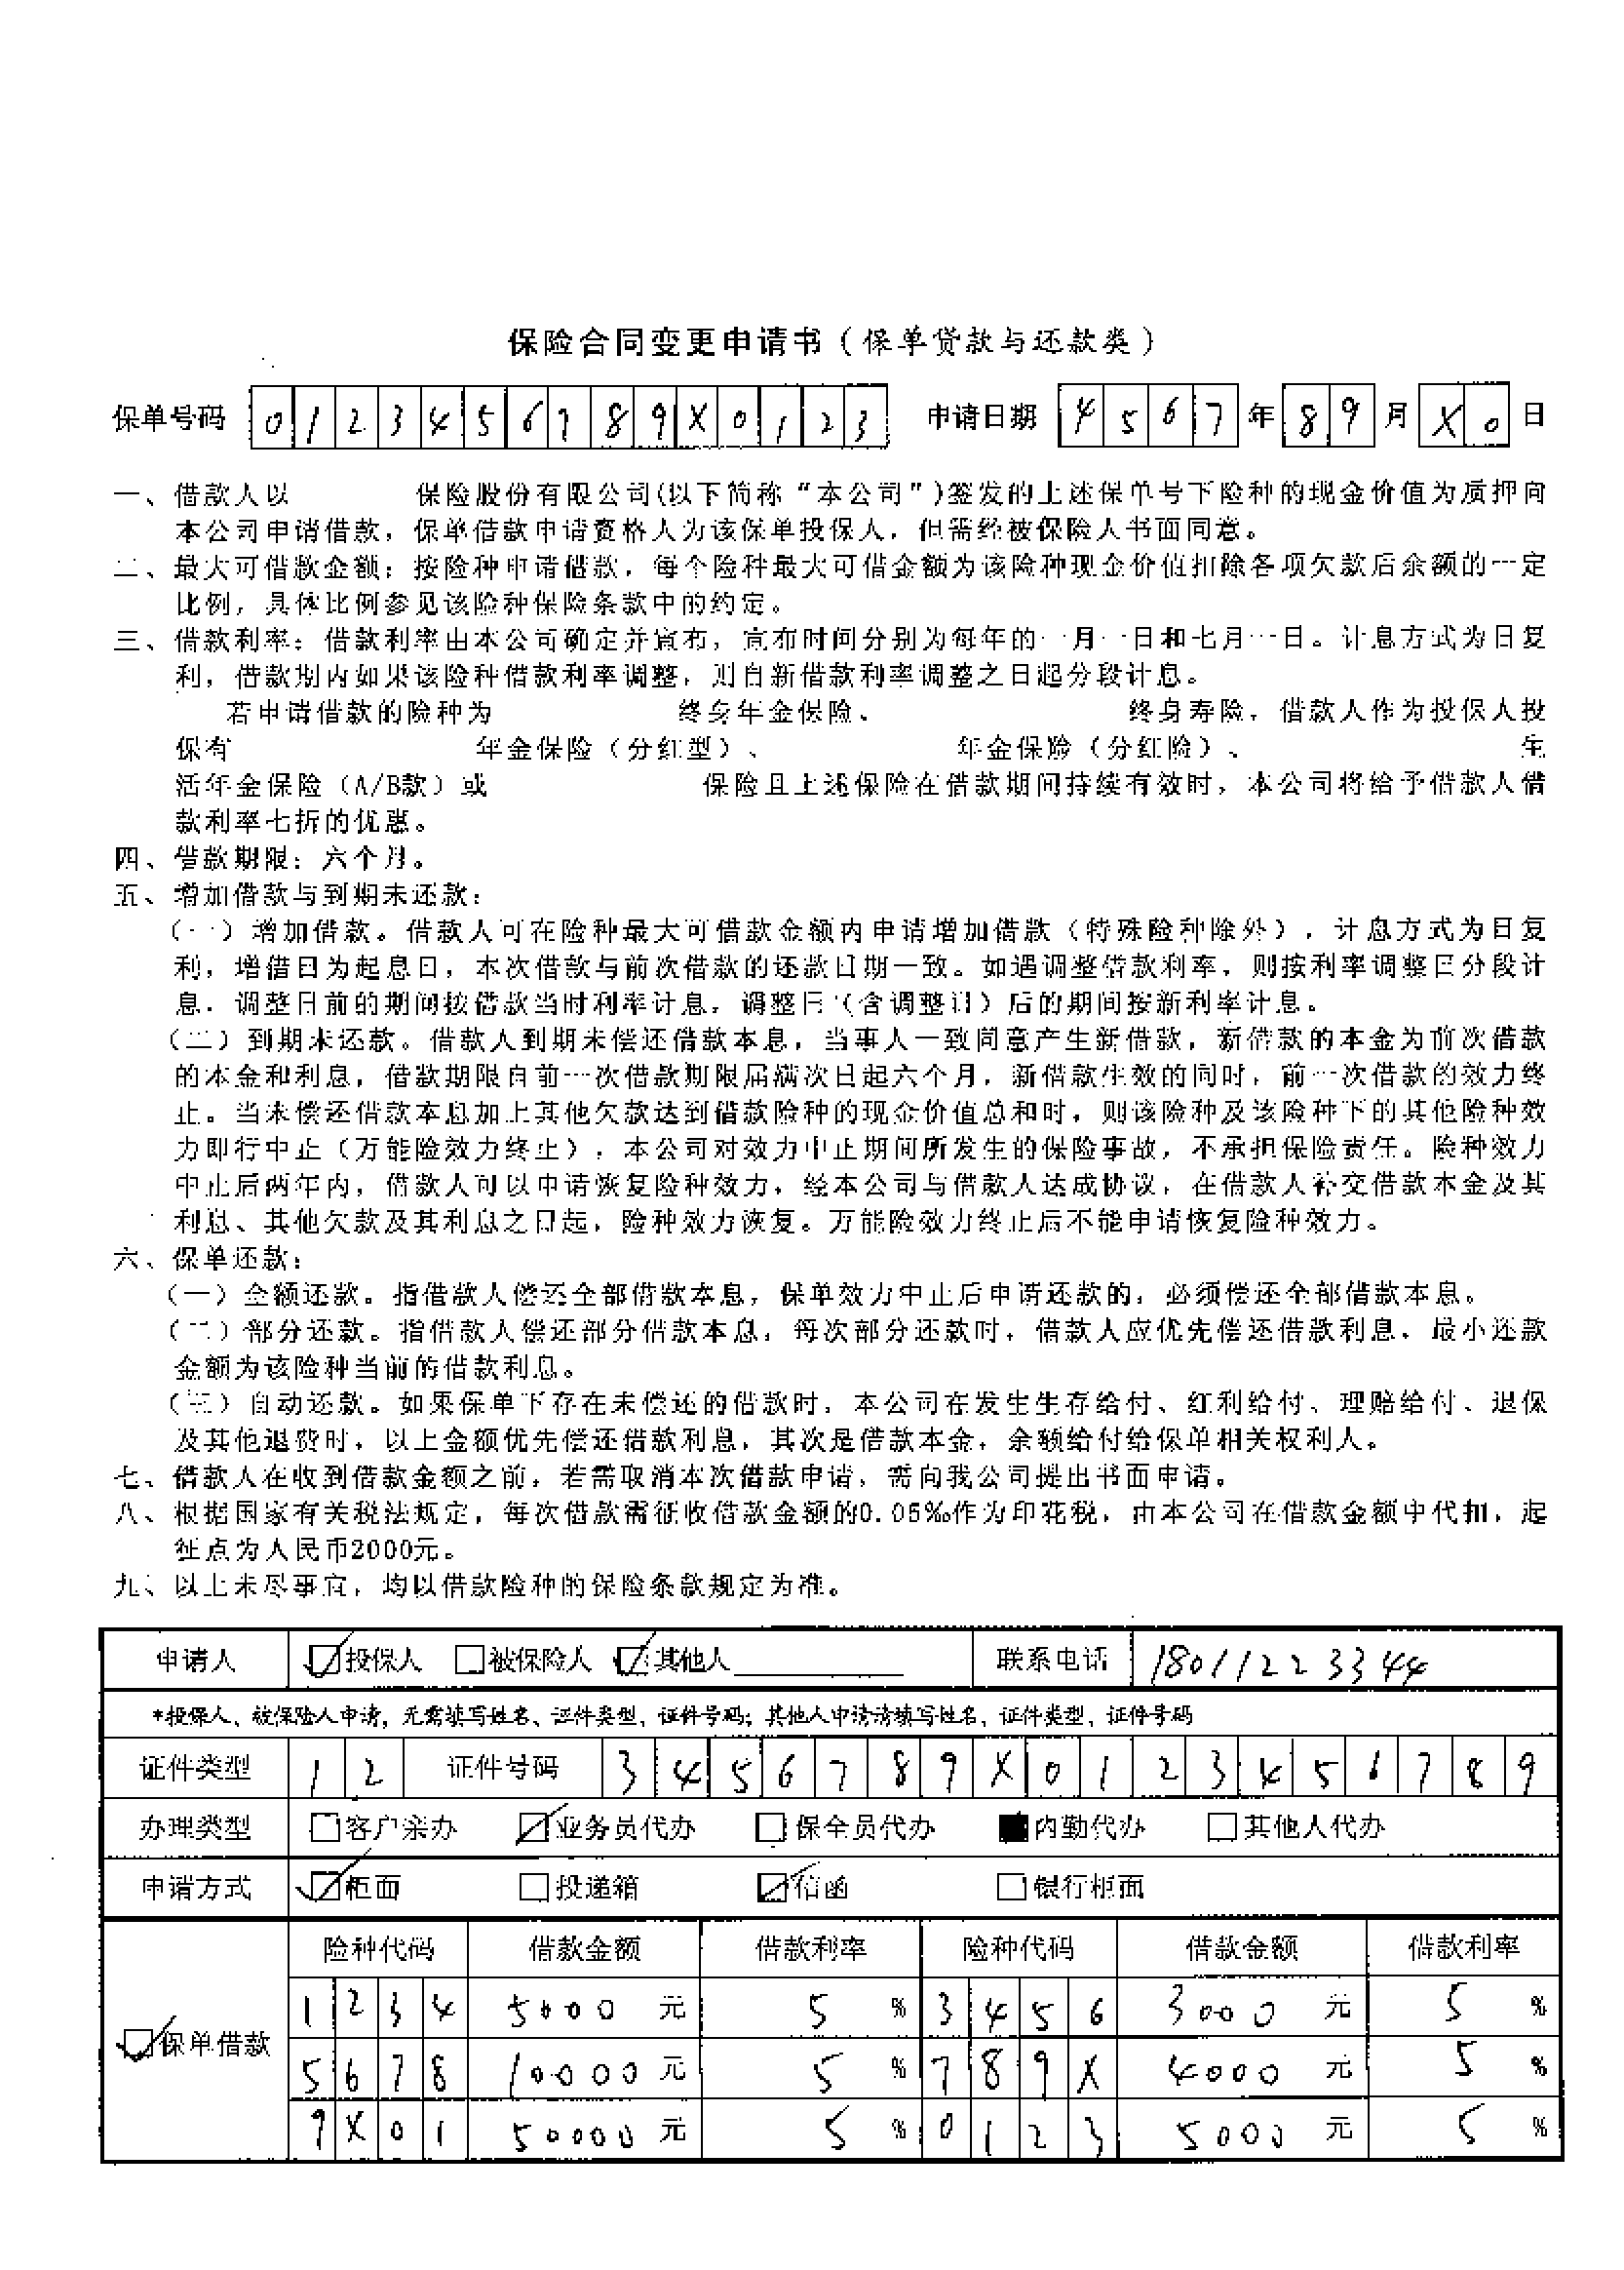 保险合同变更申请书（保单贷款与还款类）
保单号码 0 1 2 3 4 5 6 7 8 9 X 0 1 2 3 申请日期 4 5 6 7 年 8 9 月 X 0 日
一、借款人以 保险股份有限公司(以下简称“本公司”)签发的上述保单号下险种的现金价值为质押向
本公司申请借款，保单借款申请资格人为该保单投保人，但需经被保险人书面同意。
二、最大可借款金额：按险种申请借款，每个险种最大可借金额为该险种现金价值扣除各项欠款后余额的一定
比例，具体比例参见该险种保险条款中的约定。
三、借款利率：借款利率由本公司确定并宣布，宣布时间分别为每年的一月一日和七月一日。计息方式为日复
利，借款期内如果该险种借款利率调整，则自新借款利率调整之日起分段计息。
若申请借款的险种为 终身年金保险、 终身寿险，借款人作为投保人投
保有 年金保险（分红型）、 年金保险（分红险）、 生
活年金保险（A/B款）或 保险且上述保险在借款期间持续有效时，本公司将给予借款人借
款利率七折的优惠。
四、借款期限：六个月。
五、增加借款与到期未还款：
（一）增加借款。借款人可在险种最大可借款金额内申请增加借款（特殊险种除外），计息方式为日复
利，增借日为起息日，本次借款与前次借款的还款日期一致。如遇调整借款利率，则按利率调整日分段计
息，调整日前的期间按借款当时利率计息，调整日（含调整日）后的期间按新利率计息。
（二）到期未还款。借款人到期未偿还借款本息，当事人一致同意产生新借款，新借款的本金为前次借款
的本金和利息，借款期限自前一次借款期限届满次日起六个月，新借款生效的同时，前一次借款的效力终
止。当未偿还借款本息加上其他欠款达到借款险种的现金价值总和时，则该险种及该险种下的其他险种效
力即行中止（万能险效力终止），本公司对效力中止期间所发生的保险事故，不承担保险责任。险种效力
中止后两年内，借款人可以申请恢复险种效力，经本公司与借款人达成协议，在借款人补交借款本金及其
利息、其他欠款及其利息之日起，险种效力恢复。万能险效力终止后不能申请恢复险种效力。
六、保单还款：
（一）全额还款。指借款人偿还全部借款本息，保单效力中止后申请还款的，必须偿还全部借款本息。
（二）部分还款。指借款人偿还部分借款本息，每次部分还款时，借款人应优先偿还借款利息，最小还款
金额为该险种当前的借款利息。
（三）自动还款。如果保单下存在未偿还的借款时，本公司在发生生存给付、红利给付、理赔给付、退保
及其他退费时，以上金额优先偿还借款利息，其次是借款本金，余额给付给保单相关权利人。
七、借款人在收到借款金额之前，若需取消本次借款申请，需向我公司提出书面申请。
八、根据国家有关税法规定，每次借款需征收借款金额的0.05‰作为印花税，由本公司在借款金额中代扣，起
征点为人民币2000元。
九、以上未尽事宜，均以借款险种的保险条款规定为准。
申请人 投保人 被保险人 其他人 联系电话 18011223344
*投保人、被保险人申请，无需填写姓名、证件类型，证件号码；其他人申请请填写姓名、证件类型，证件号码
证件类型 1 2 证件号码 3 4 5 6 7 8 9 X 0 1 2 3 4 5 6 7 8 9
办理类型 客户亲办 业务员代办 保全员代办 内勤代办 其他人代办
申请方式 柜面 投递箱 信函 银行柜面
险种代码 借款金额 借款利率 险种代码 借款金额 借款利率
1 2 3 4 5000 元 5 % 3 4 5 6 3000 元 5 %
保单借款
5 6 7 8 10000 元 5 % 7 8 9 X 4000 元 5 %
9 X 0 1 50000 元 5 % 0 1 2 3 5000 元 5 %